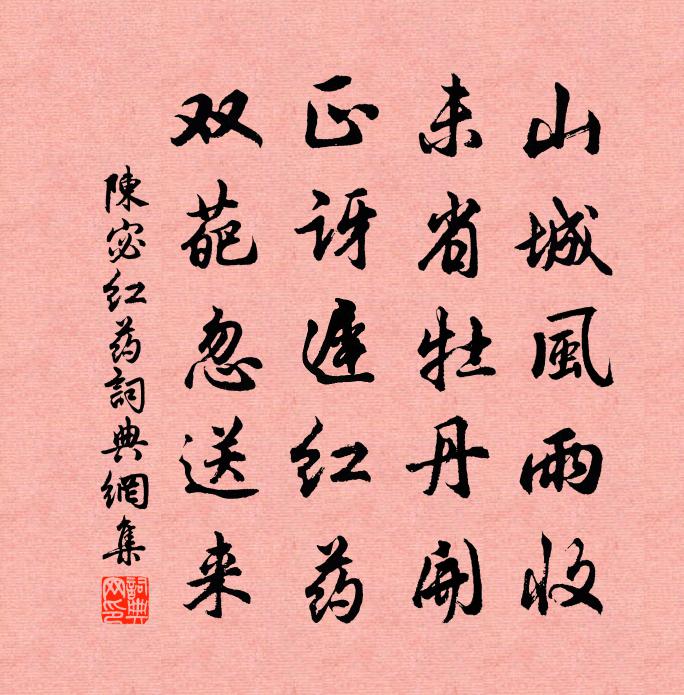 山城風雨收
未省牡丹開
正讶遲红药
双葩忽送来
陳宓红药詞典網集
詞典網印